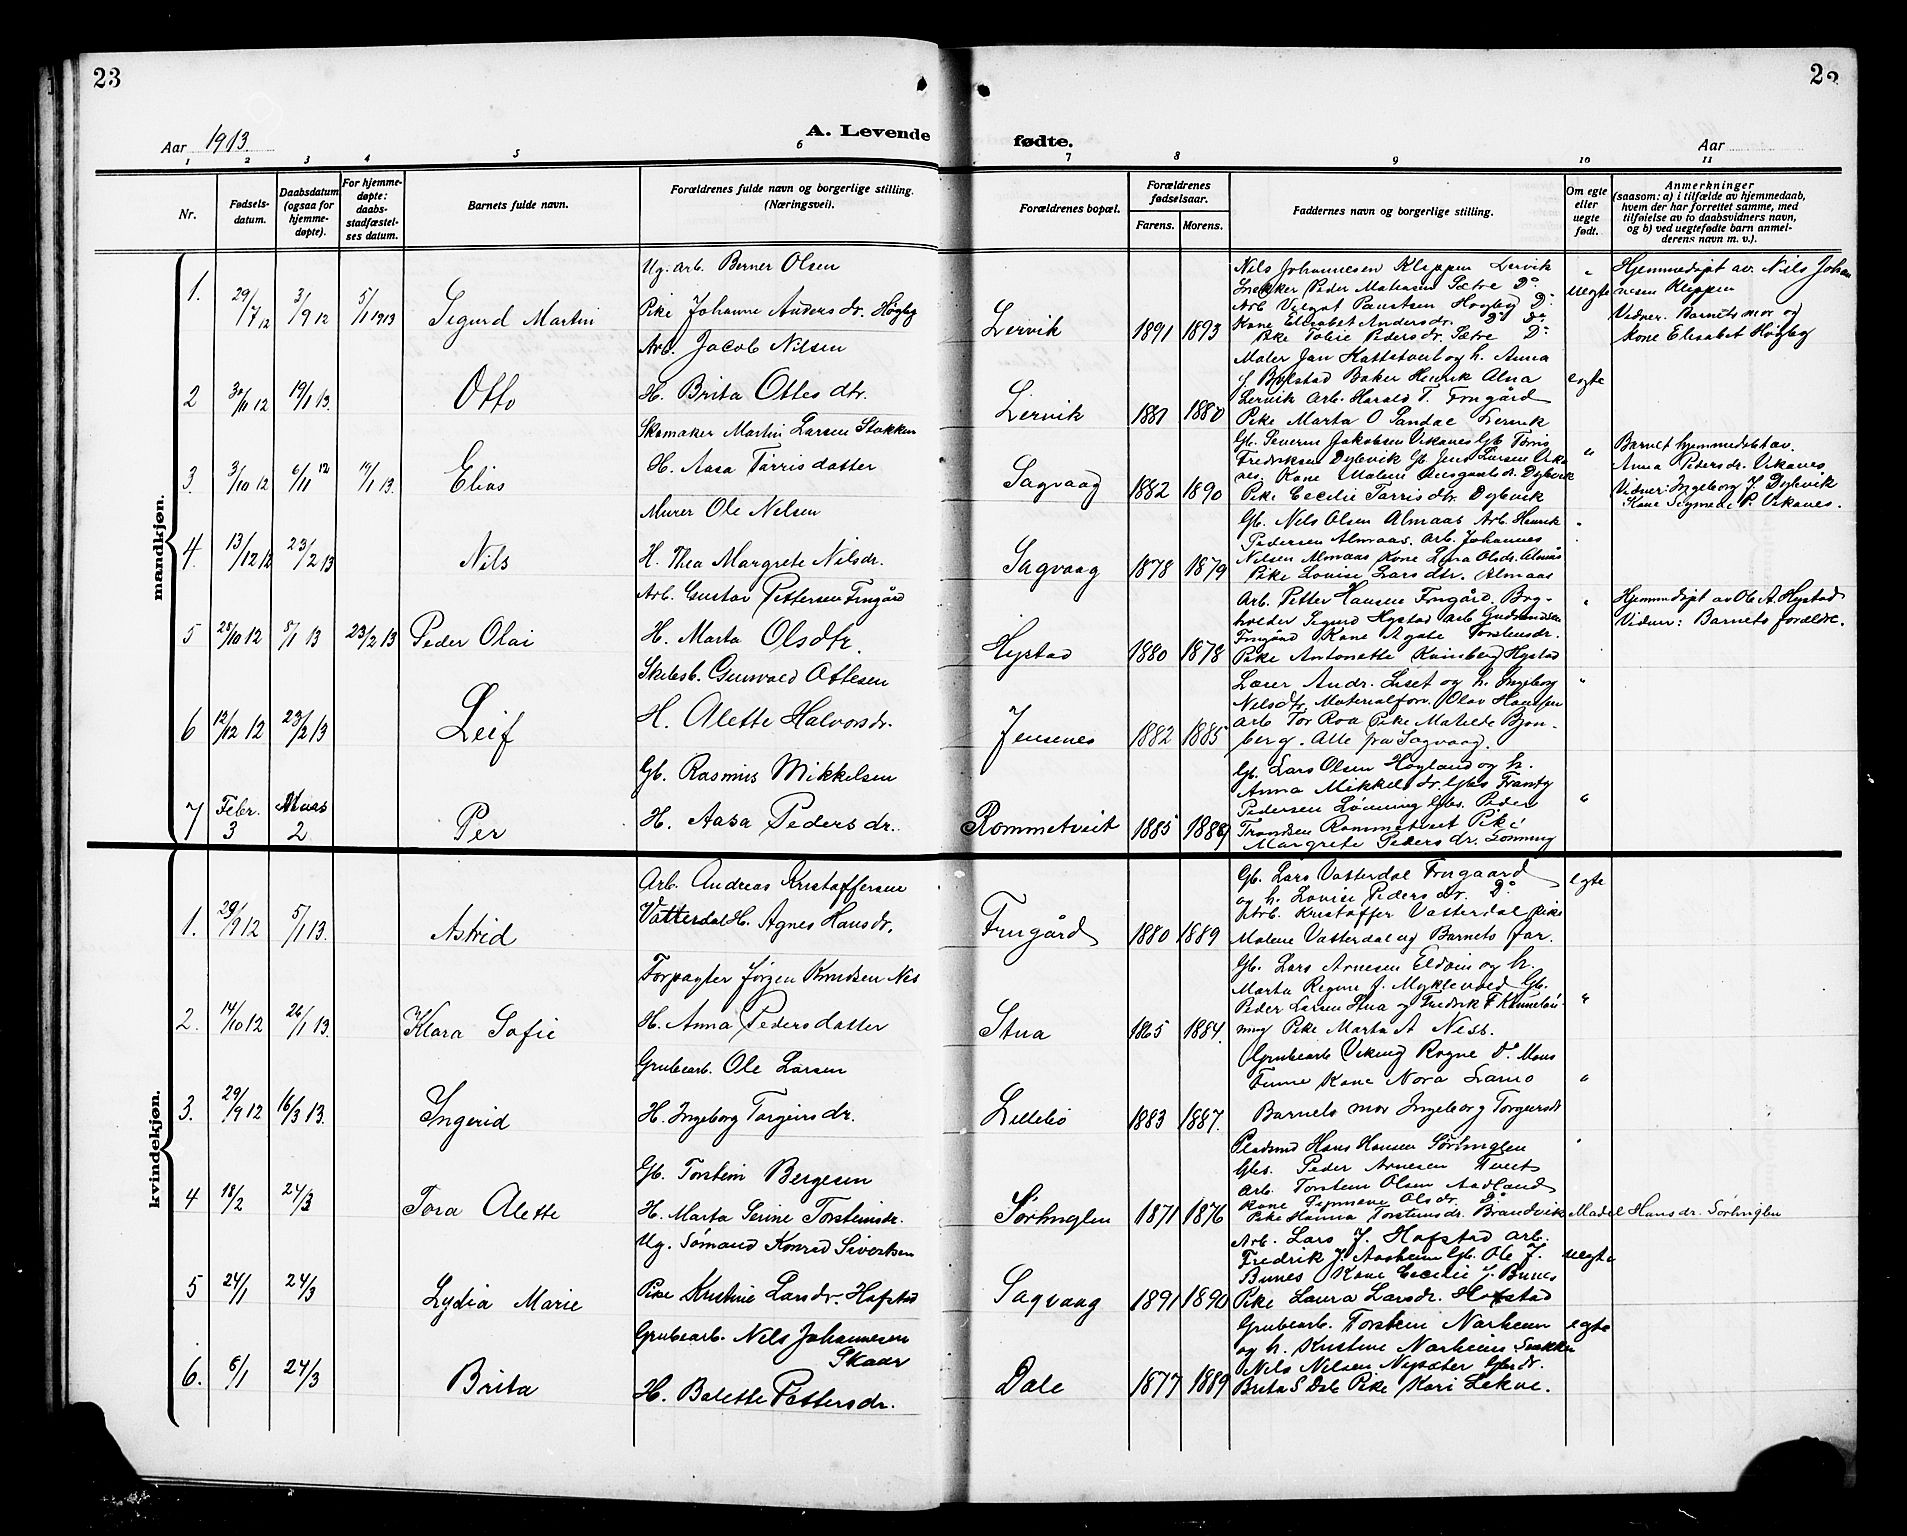 23
23
Aar 1913.
A. Levende fødte.
Aar
1 2 3 4 5 6 7 8 9 10 11
Nr.
Fødsels-
datum.
Daabsdatum
(ogsaa for
hjemme-
døpte).
For hjemme-
døpte:
daabs-
stadfæstel-
ses datum.
Barnets fulde navn.
Forældrenes fulde navn og borgerlige stilling.
(Næringsvei).
Forældrenes bopæl.
Forældrenes
fødselsaar.
Farens. Morens.
Faddernes navn og borgerlige stilling.
Om egte
eller
uegte
født.
Anmerkninger
(saasom: a) i tilfælde av hjemmedaab,
hvem der har forrettet samme, med
tilføielse av to daabsvidners navn,
og b) ved uegtefødte barn anmel-
derens navn m. v.).
mandkjøn.
1. 29/7 12 3/9 12 5/1 1913 Sigurd Martin
Ug. Arb. Berner Olsen
Pike Johanne Andersdr. Høgby
Lervik 1891 1893
Nils Johannesen Klippen Lervik
Snekker Peder Mathiasen Sætre Do
Arb Valgot Paustsen Høgby Do
Kone Elisabet Andersdr. Do Do
Pike Tobie Pedersdr. Sætre Do
uegte
Hjemmedøpt av Nils Johan
nesen Klippen
Vidner. Barnets mor og
Kone Elisabet Høgby
2 30/11 12 19/1 13. Otto
Arb. Jacob Nilsen
H. Brita Ottesdtr.
Lervik 1881 1880
Maler Jan Kattstout og h. Anna
f Bystad Baker Henrik Alna
Lervik Arb. Harald T. Frugård
Pike Marta O Sandal Lervik
egte
3. 3/10 12 6/11 12 19/1 13. Elias
Skomaker Martin Larsen Stokken
H. Aasa Tarrisdatter
Sagvaag 1882 1890
Gb. Severin Jakobsen Vikanes Gb Tørris
Fredriksen Dybvik Gb Jens Larsen Vika
nes. Kone Malene Dybvik
Pike Cecilie Tarrisdtr. Dybvik
"
Barnet hjemmedøbt av
Anna Pedersdr. Vikanes
Vidner: Ingeborg J. Dybvik
Kone P. Vikanes.
4. 13/12 12 23/2 13 Nils
Murer Ole Nilsen
H. Thea Margrete Nilsdr.
Sagvaag 1878 1879
Gb. Nils Olsen Almaas Arb. Henrik
Pedersen Almaas. Arb. Johannes
Nilsen Almaas Kone Lina Olsdr. Almås
Pike Lovise Larsdtr. Almaas
"
5 28/10 12 5/1 13 23/2 13 Peder Olai
Arb. Gustav Pettersen Frugård
H. Marta Olsdtr.
Hystad 1880 1878
Arb. Petter Hansen Frugård. Brg-
holder Sigurd Hystad Arb Gudmundsen
Frugård Kone Agate Torstensdr.
Pike Antonette Hystad
"
Hjemmedøpt av Ole A. Hystad
Vidner: Barnets forældre.
6 12/12 12 23/2 13 Leif
Skibsb. Gunvald Ottesen
H. Alette Halvorsdr.
Jensenes 1882 1885
Lærer Andr. Liset og h. Ingeborg
Nilsdtr Materialforv. Olav Hansen
Arb Tor Roa Pike Matilde Bjon-
berg. Alle fra Sagvaag.
"
7 Febr. 3 Mars 2. Per
Gb. Rasmus Mikkelsen
H. Aasa Pedersdr.
Rommetveit 1885 1889
Gb. Lars Olsen Høyland og h.
Anna Mikkelsdr. Gbs Frantz
Pedersen Lønning Gbs. Peder
Trondsen Rommetveit Pike
Margrete Pedersdr. Lønning
"
kvindekjøn.
1. 29/9 12 5/1 13. Astrid
Arb. Andreas Kristoffersen
Vatterdal H. Agnes Hansdr.
Frugård 1880 1889
Gb. Lars Vatterdal Frugaard
og h. Lovise Pedersdr. Do
Arb. Kristoffer Vatterdal Pike
Malene Vatterdal og Barnets far.
egte
2. 14/10 12 26/1 13. Klara Sofie
Forpagter Jørgen Knudsen Nes
H. Anna Pedersdatter
Stua 1865 1884.
Gb. Lars Arnesen Eldøin og h.
Marta Regine J. Myklevold Gb.
Peder Larsen Stua og Fredrik F.
ning Pike Marta A Ness.
"
3. 29/9 12 16/3 13. Ingerid
Grubearb. Ole Larsen
H. Ingeborg Torgeirsdr.
Lillebø 1883 1887.
Grubearb Viking Rogne Do. Mons
Femne Kone Nora Lamo
Barnets mor Ingeborg Torgeirsdt
"
4 18/2 24/3 Tora Alette
Gb. Torstein Bergesen
H. Marta Serine Torsteinsdr.
Sørhuglen 1871 1876
Pladsmd Hans Hansen Sørhuglen
Gbs. Peder Arnesen Tveit
Arb. Torstein Olsen Aadland
Kone Synnøve Olsdr. Do
Pike Hanna Torsteinsdr. Brandvik Madel Hansdr. Sørhuglen
"
5 24/1 24/3 Lydia Marie
Ug. Sømand Konrad Sivertsen
Pike Kristine Larsdr. Hofstad
Sagvaag 1891 1890
Arb. Lars J. Hofstad Arb.
Fredrik J. Aasheim Gb. Ole J.
Bunes Kone Cecilie J. Bunes
Pike Laura Larsdr. Hofstad
uegte
6. 6/1 24/3 Brita
Grubearb. Nils Johannesen
Skaar
H. Balette Pettersdr.
Dale 1877 1889
Grubearb. Torstein Narheim
og h. Kristine Narheim Snekker
Nils Nilsen Nysæter Gbdr.
Brita S Dale Pike Kari Lekve.
egte